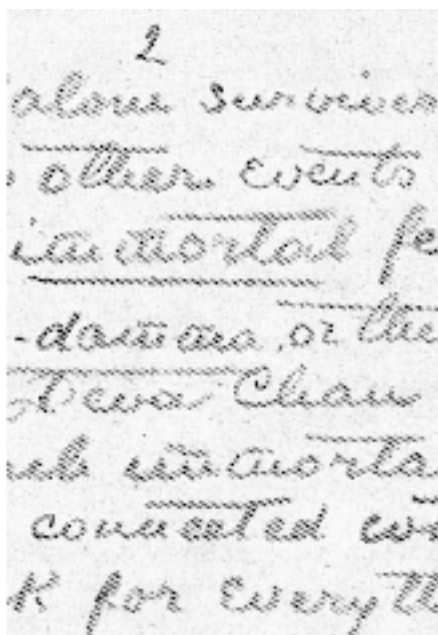 2
alone survives
other events
immortal fe
-damma, or the
Deva Chan
immorta
connected
k for everyth